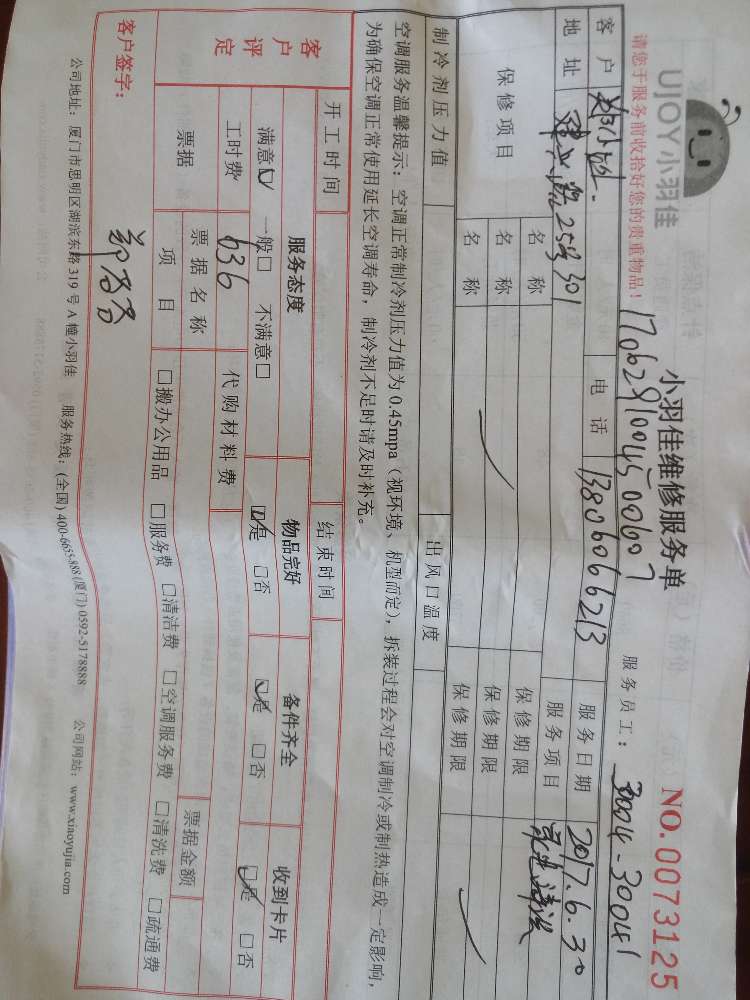 UJOY小羽佳
小羽佳维修服务单
NO.0073125
请您于服务前收拾好您的贵重物品！
1706281004500607
服务员工： 3004-30041
客户 电话 13806066213 服务日期 2017.6.30
地址 25号301 服务项目 清洗
保修项目 名称 保修期限
名称 保修期限
名称 保修期限
制冷剂压力值 出风口温度
空调服务温馨提示：空调正常制冷剂压力值为0.45mpa（视环境、机型而定），拆装过程会对空调制冷或制热造成一定影响，
为确保空调正常使用延长空调寿命，制冷剂不足时请及时补充。
开工时间 结束时间
客户评定 服务态度 物品完好 备件齐全 收到卡片
满意☑ 一般□ 不满意□ ☑是 □否 ☑是 □否 ☑是 □否
工时费 636 代购材料费
票据 票据名称 票据金额
项目 □搬办公用品 □服务费 □清洁费 □空调服务费 □清洗费 □疏通费
客户签字：
公司地址：厦门市思明区湖滨东路319号A幢小羽佳 服务热线：(全国) 400-6655-888 (厦门) 0592-5178888 公司网站：www.xiaoyujia.com